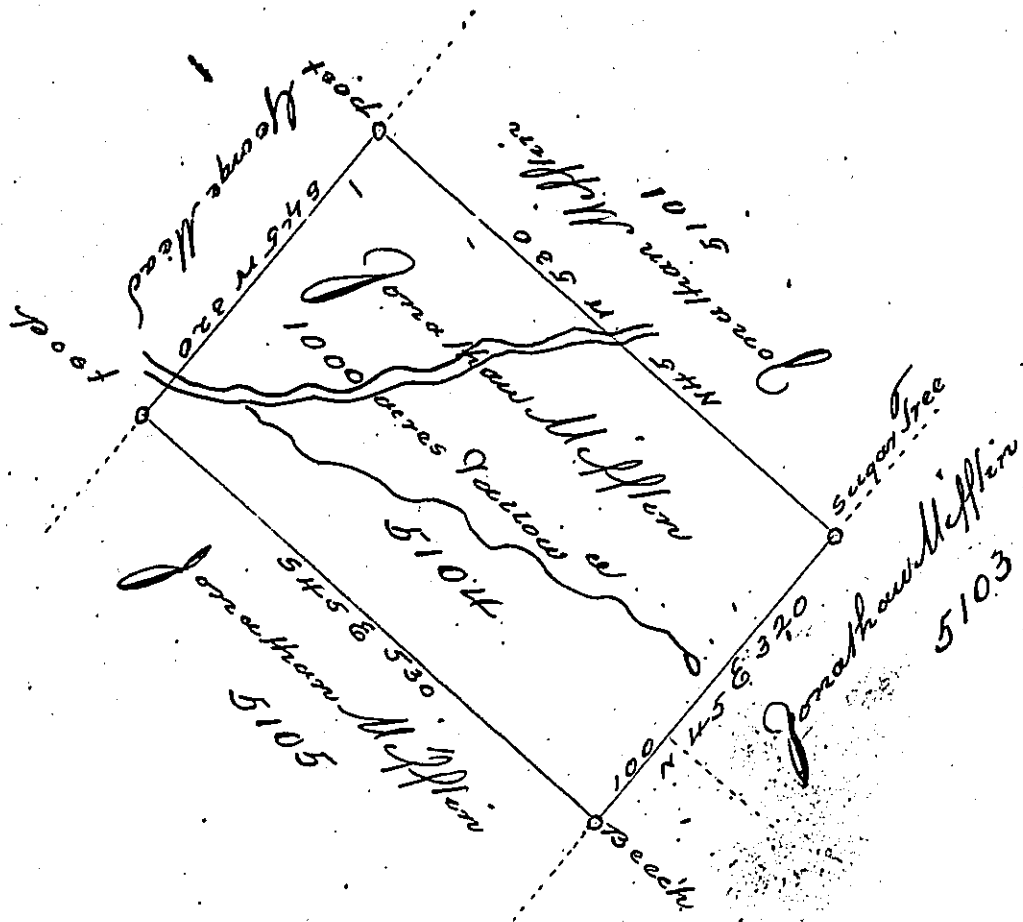 Post
George Mead
S 45 W 320
Post
Jonathan Mifflin
5101
N 45 W 530
Jonathan Mifflin
1000 acres & allow ce
5104
Sugar Tree
Jonathan Mifflin
5103
N 45 E 320
100
S 45 E 530
Jonathan Mifflin
5105
Beech